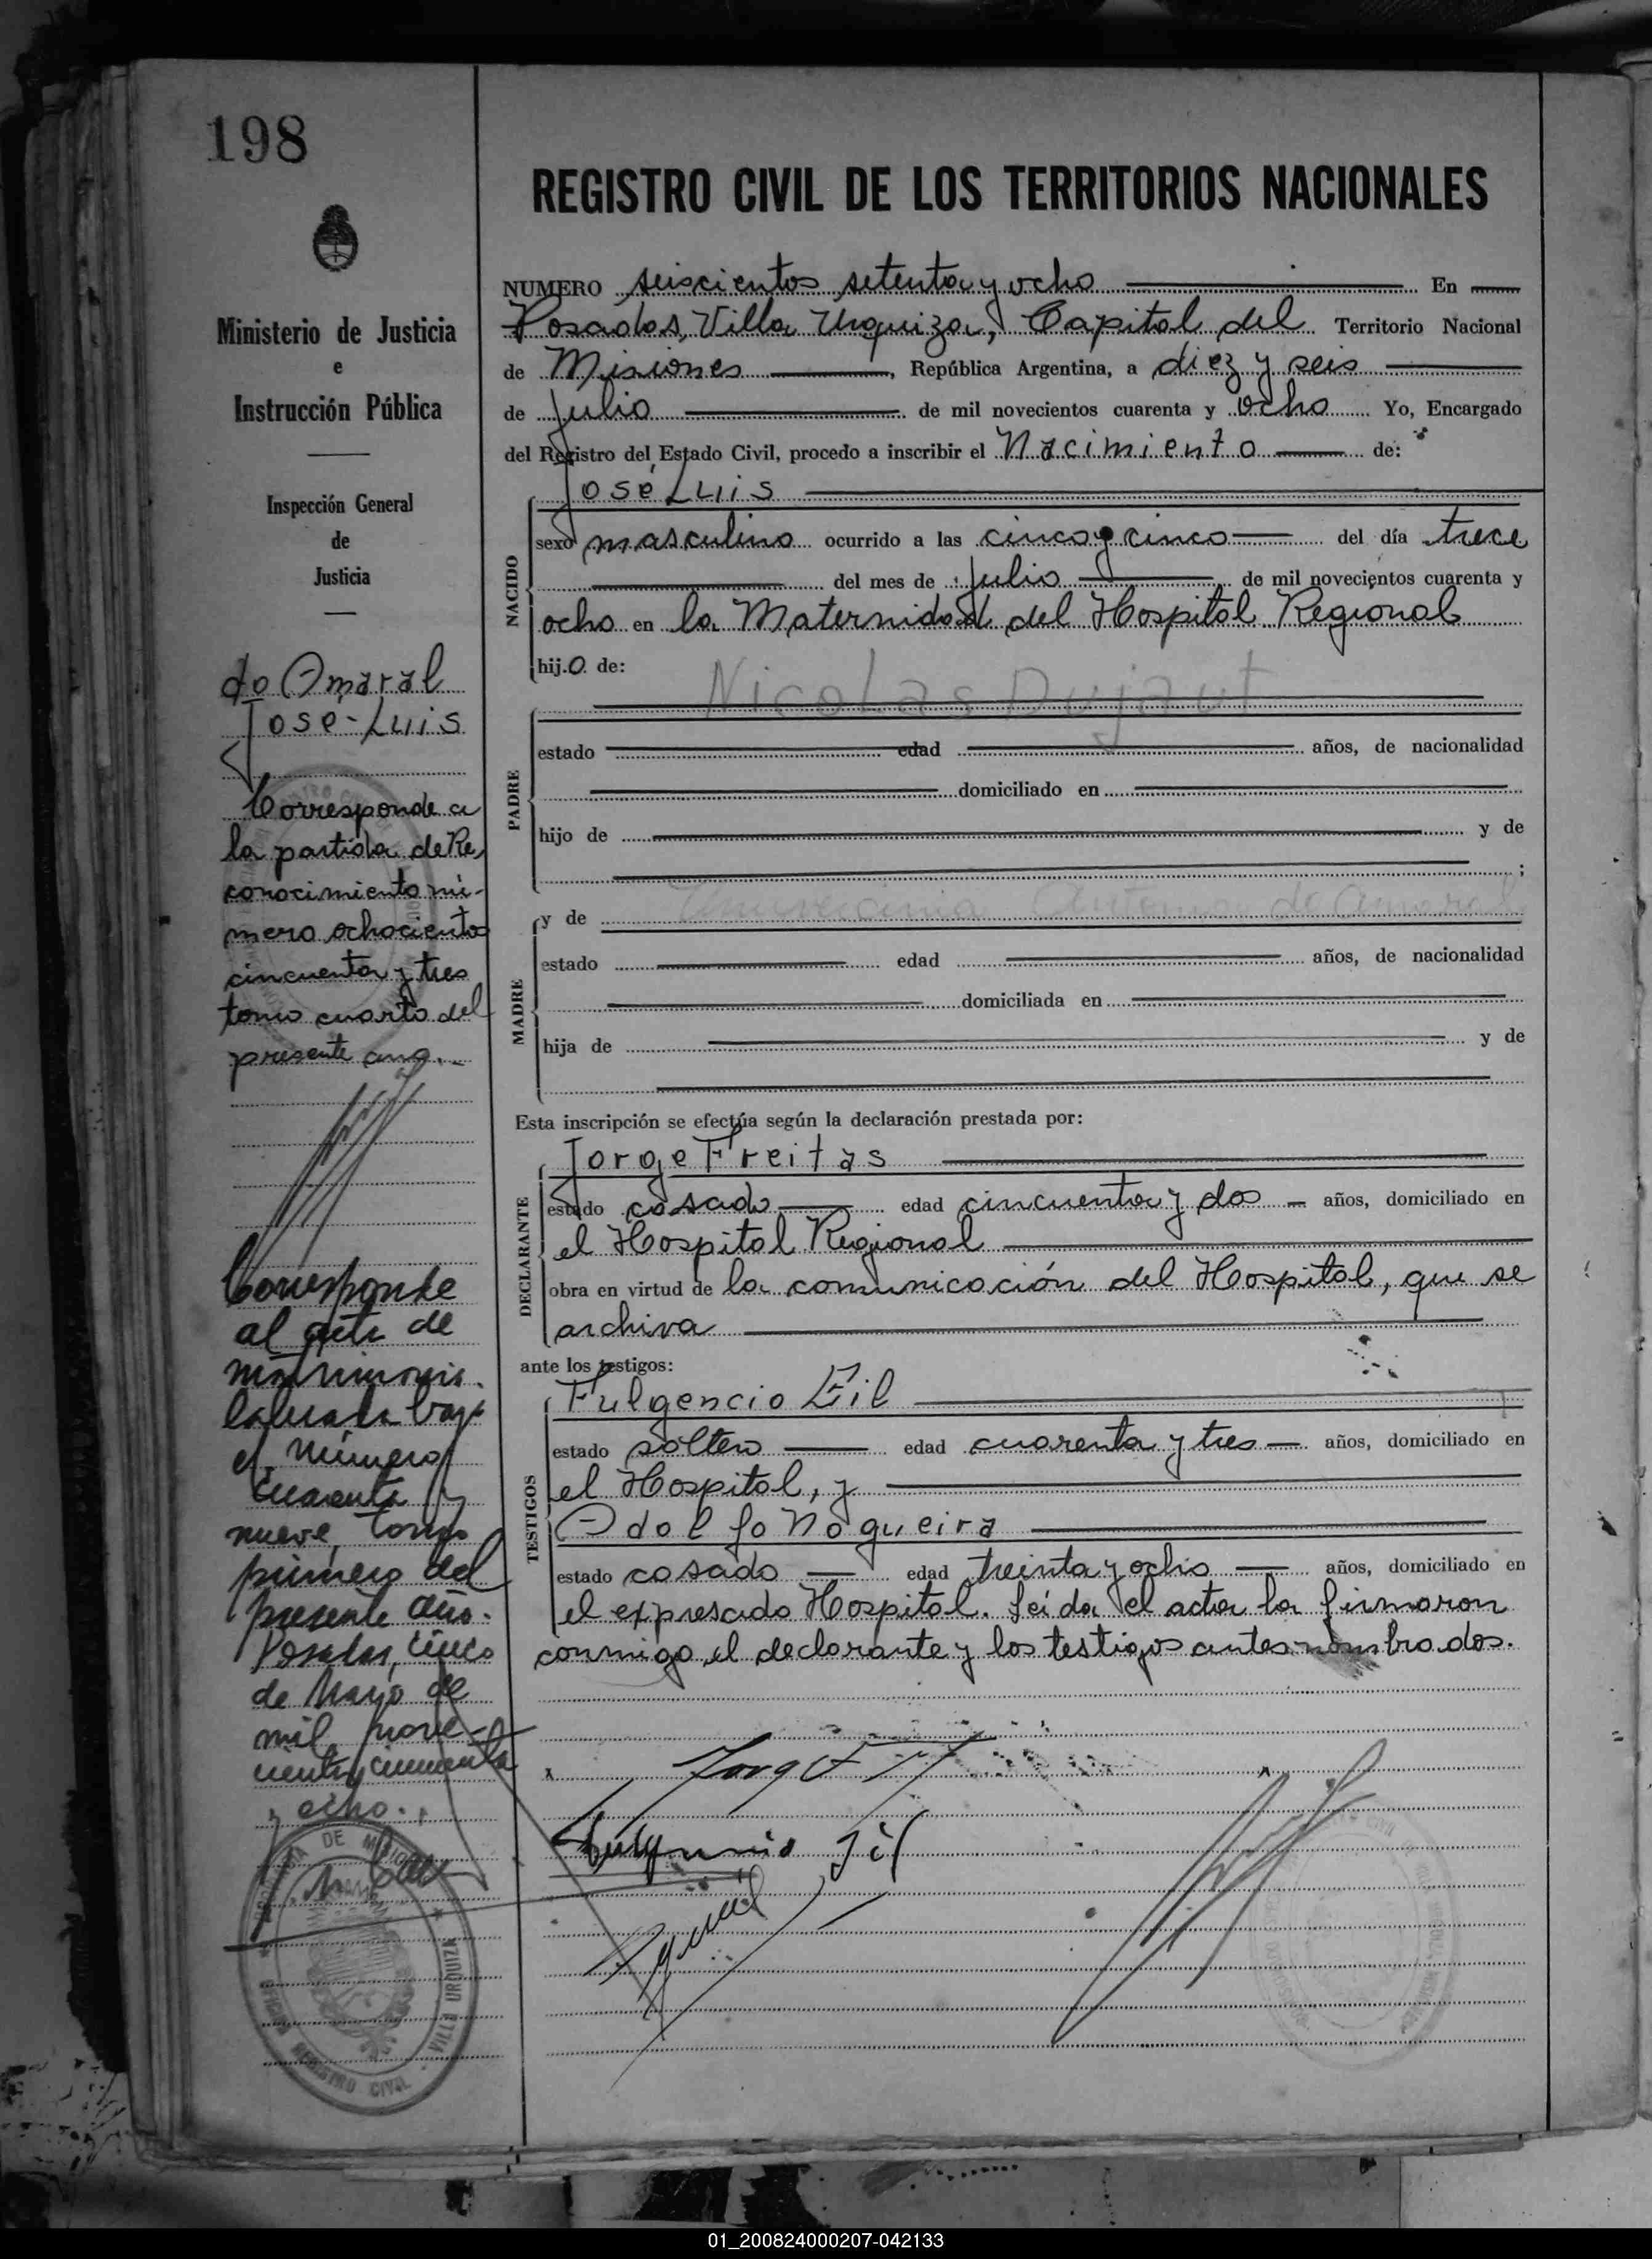 198
REGISTRO CIVIL DE LOS TERRITORIOS NACIONALES
Ministerio de Justicia
e
Instrucción Pública
Inspección General
de
Justicia
do Amaral
José-Luis
Corresponde a
la partida de Re
conocimiento nú-
mero ochocientos
cincuenta y tres
tomo cuarto del
presente año.-
Corresponde
al acta de
matrimonio
labrada bajo
el número
cuarenta y
nueve, tomo
primero del
presente año.
Posadas, cinco
de Mayo de
mil nove-
cientos cincuenta
y ocho.
DE MISIONES
OFICINA REGISTRO CIVIL - VILLA URQUIZA
NUMERO seiscientos setenta y ocho En
Posadas, Villa Urquiza, Capital del Territorio Nacional
de Misiones, República Argentina, a diez y seis
de Julio de mil novecientos cuarenta y ocho Yo, Encargado
del Registro del Estado Civil, procedo a inscribir el Nacimiento de:
José Luis
NACIDO
sexo masculino ocurrido a las cinco y cinco del día trece
del mes de julio, de mil novecientos cuarenta y
ocho en la Maternidad del Hospital Regional
hijo de:
Nicolas Dujaut
PADRE
estado edad años, de nacionalidad
domiciliado en
hijo de y de
;
MADRE
y de Antonia do Amaral
estado edad años, de nacionalidad
domiciliada en
hija de y de
Esta inscripción se efectúa según la declaración prestada por:
DECLARANTE
Jorge Freitas
estado casado edad cincuenta y dos años, domiciliado en
el Hospital Regional
obra en virtud de la comunicación del Hospital, que se
archiva
ante los testigos:
TESTIGOS
Fulgencio Gil
estado soltero edad cuarenta y tres años, domiciliado en
el Hospital, y
Adolfo Nogueira
estado casado edad treinta y ocho años, domiciliado en
el expresado Hospital. Leída el acta la firmaron
conmigo el declarante y los testigos antes nombrados.
Fulgencio Gil
01_200824000207-042133